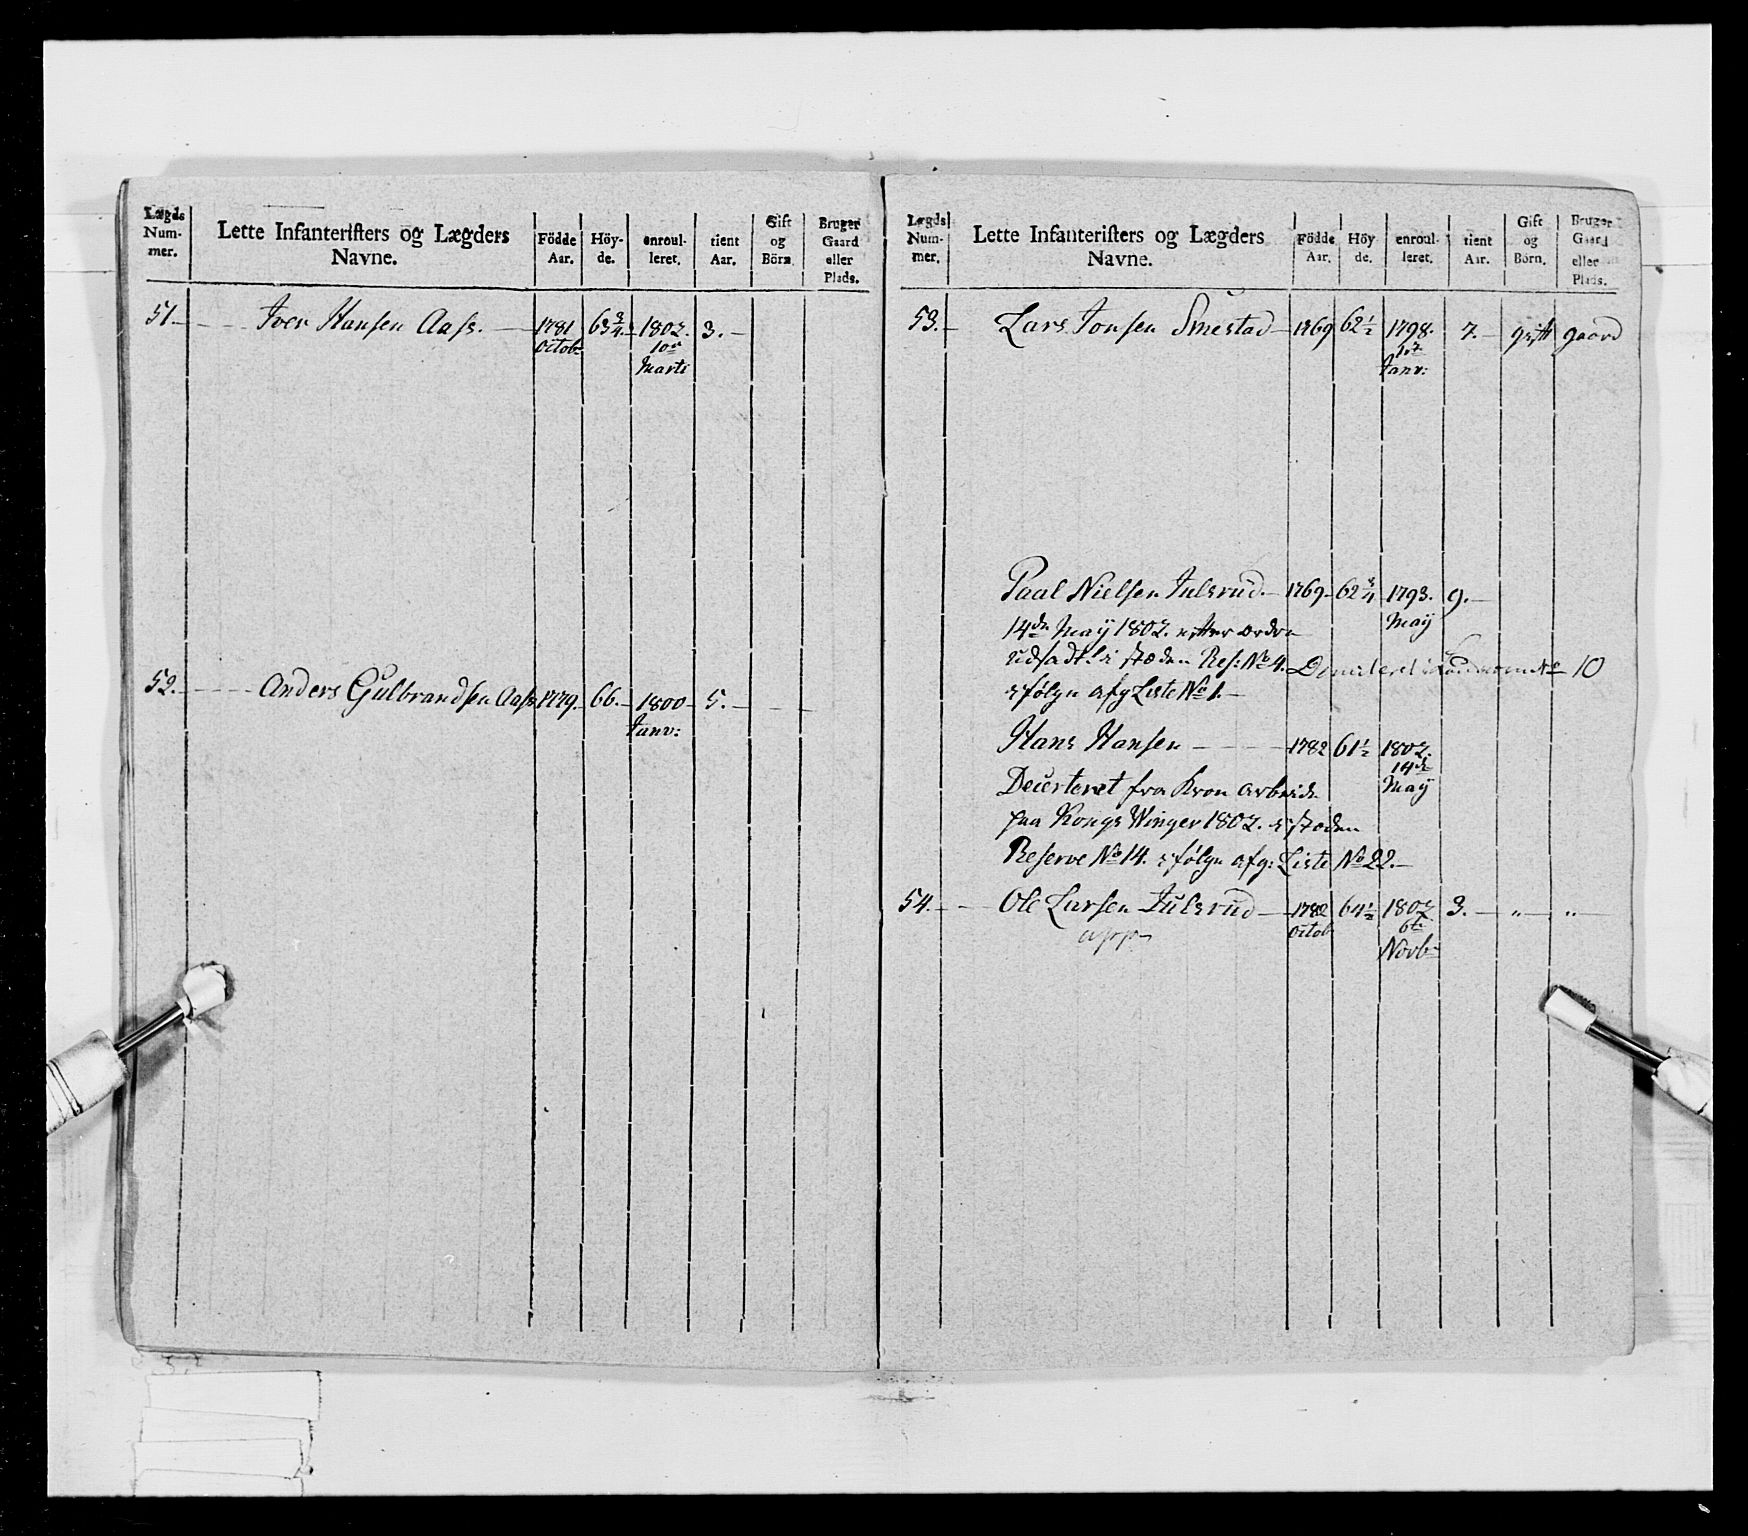 Lægds Nummer. Lette Infanteristers og Lægders Navne. Födde Aar. Höyde. enroulleret. tient Aar. Gift og Börn. Bruger Gaard eller Plads.
51. Iver Hansen Aass. 1781 63 3/4 1802. 3.
Octob: 10de
Marti
52. Anders Gulbrandsen Aass 1779. 66. 1800 5.
Janv:
Lægds Nummer. Lette Infanteristers og Lægders Navne. Födde Aar. Höyde. enroulleret. tient Aar. Gift og Börn. Bruger Gaard eller Plads.
53. Lars Jonsen Smestad 1769 62 1/2 1798. 7. gift gaard
Janv:
Paal Nielsen Julsrud. 1769. 62 3/4 1793. 9.
14de May 1802. efter ordre May
udsadt i stæden Res: No 4. 10
følge afg Liste No 1.
Hans Hansen 1782 61 1/2 1802.
14de
Deserteret fra Kron arbeide May
paa Kongs Winger 1802. i stæden
Reserve No 14. følge afg: Liste No 22.
54. Ole Larsen Julsrud 1782 64 1/2 1802 3. " "
app Octob 6te
Novb